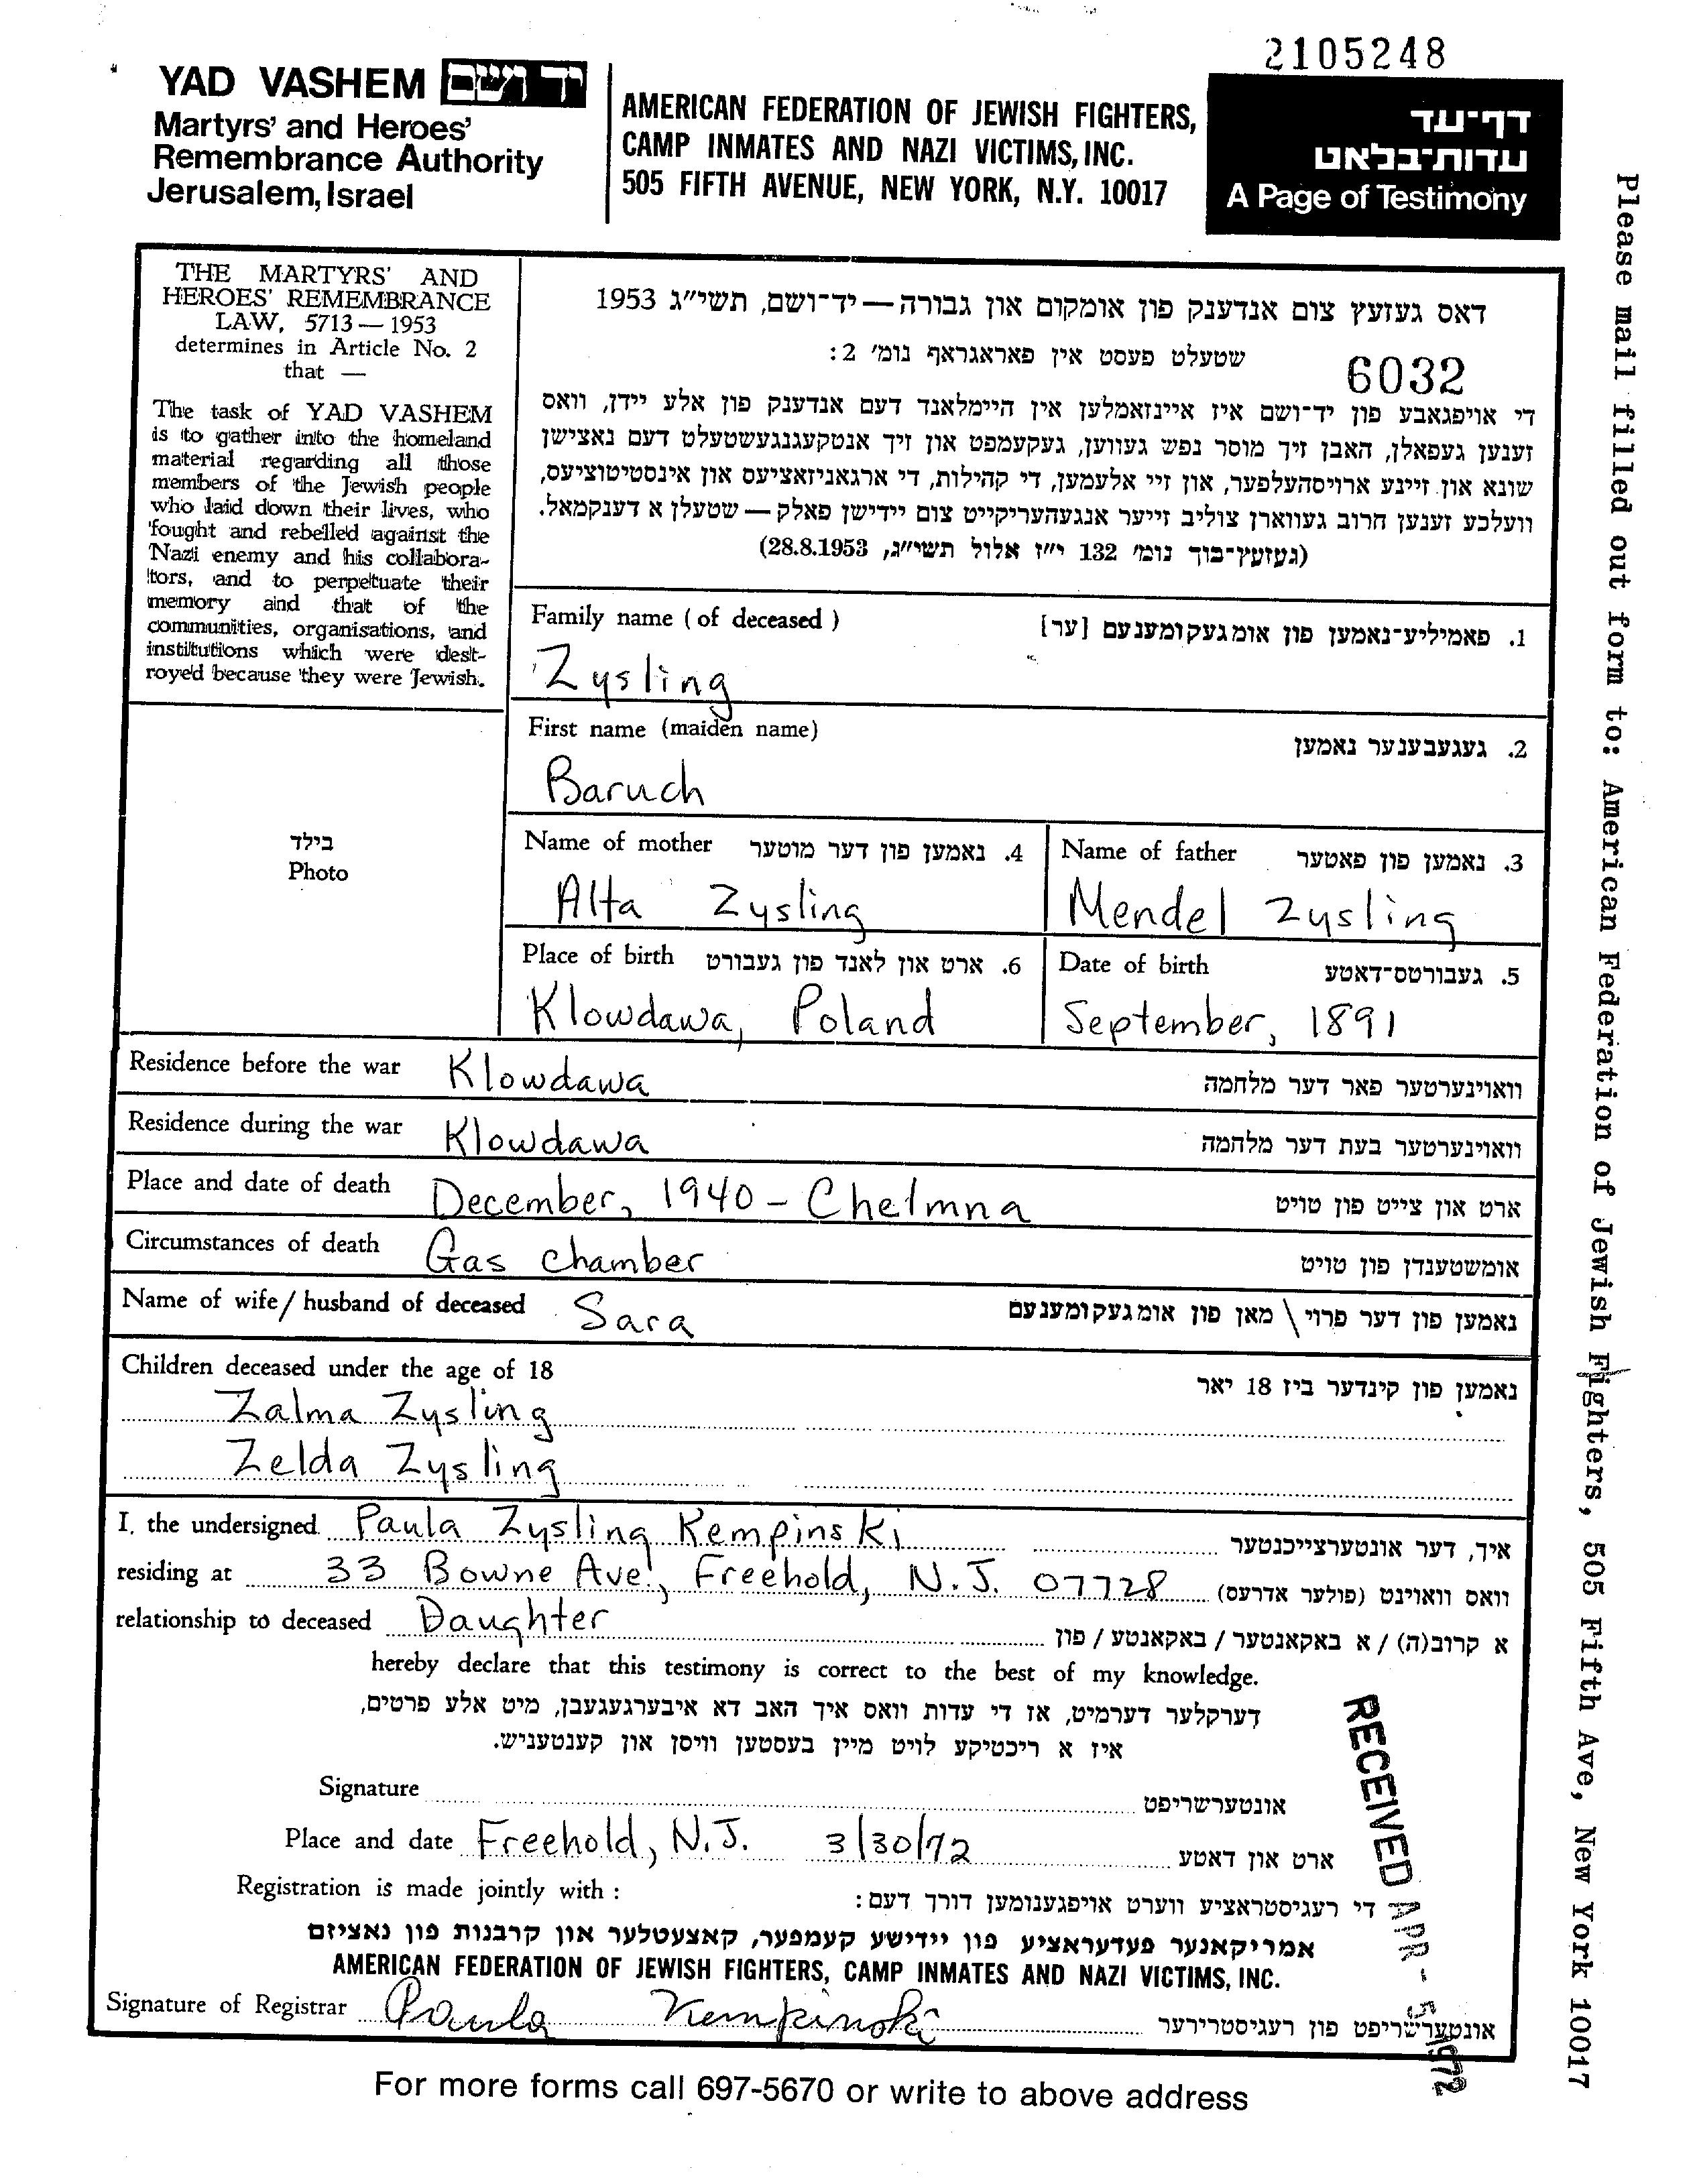 2105248
YAD VASHEM יד ושם
Martyrs' and Heroes'
Remembrance Authority
Jerusalem, Israel
AMERICAN FEDERATION OF JEWISH FIGHTERS,
CAMP INMATES AND NAZI VICTIMS, INC.
505 FIFTH AVENUE, NEW YORK, N.Y. 10017
דף־עד
עדות־בלאט
A Page of Testimony
THE MARTYRS' AND
HEROES' REMEMBRANCE
LAW, 5713 — 1953
determines in Article No. 2
that —
The task of YAD VASHEM
is to gather into the homeland
material regarding all those
members of the Jewish people
who laid down their lives, who
fought and rebelled against the
Nazi enemy and his collabora-
tors, and to perpetuate their
memory and that of the
communities, organisations, and
institutions which were dest-
royed because they were Jewish.
דאס געזעץ צום אנדענק פון אומקום און גבורה — יד־ושם, תשי״ג 1953
שטעלט פעסט אין פאראגראף נומ׳ 2:
6032
די אויפגאבע פון יד־ושם איז איינזאמלען אין היימלאנד דעם אנדענק פון אלע יידן, וואס
זענען געפאלן, האבן זיך מוסר נפש געווען, געקעמפט און זיך אנטקעגנגעשטעלט דעם נאצישן
שונא און זיינע ארויסהעלפער, און זיי אלעמען, די קהילות, די ארגאניזאציעס און אינסטיטוציעס,
וועלכע זענען חרוב געווארן צוליב זייער אנגעהעריקייט צום יידישן פאלק — שטעלן א דענקמאל.
(געזעץ־בוך נומ׳ 132 י״ז אלול תשי״ג, 28.8.1953)
Family name (of deceased) 1. פאמיליע־נאמען פון אומגעקומענעם [ער]
Zysling
First name (maiden name) 2. געגעבענער נאמען
Baruch
בילד
Photo
Name of mother 4. נאמען פון דער מוטער Name of father 3. נאמען פון פאטער
Alta Zysling Mendel Zysling
Place of birth 6. ארט און לאנד פון געבורט Date of birth 5. געבורטס־דאטע
Klowdawa, Poland September, 1891
Residence before the war Klowdawa וואוינערטער פאר דער מלחמה
Residence during the war Klowdawa וואוינערטער בעת דער מלחמה
Place and date of death December, 1940 - Chelmna ארט און צייט פון טויט
Circumstances of death Gas chamber אומשטענדן פון טויט
Name of wife / husband of deceased Sara נאמען פון דער פרוי \ מאן פון אומגעקומענעם
Children deceased under the age of 18 נאמען פון קינדער ביז 18 יאר
Zalma Zysling
Zelda Zysling
I, the undersigned Paula Zysling Kempinski איך, דער אונטערצייכנטער
residing at 33 Bowne Ave., Freehold, N.J. 07728 וואס וואוינט (פולער אדרעס)
relationship to deceased Daughter א קרוב(ה) / א באקאנטער / באקאנטע / פון
hereby declare that this testimony is correct to the best of my knowledge.
דערקלער דערמיט, אז די עדות וואס איך האב דא איבערגעגעבן, מיט אלע פרטים,
איז א ריכטיקע לויט מיין בעסטען וויסן און קענטעניש.
Signature אונטערשריפט
Place and date Freehold, N.J. 3/30/72 ארט און דאטע
Registration is made jointly with : די רעגיסטראציע ווערט אויפגענומען דורך דעם:
אמריקאנער פעדעראציע פון יידישע קעמפער, קאצעטלער און קרבנות פון נאציזם
AMERICAN FEDERATION OF JEWISH FIGHTERS, CAMP INMATES AND NAZI VICTIMS, INC.
Signature of Registrar Paula Kempinski אונטערשריפט פון רעגיסטרירער
RECEIVED APR - 5 1972
For more forms call 697-5670 or write to above address
Please mail filled out form to: American Federation of Jewish Fighters, 505 Fifth Ave, New York 10017